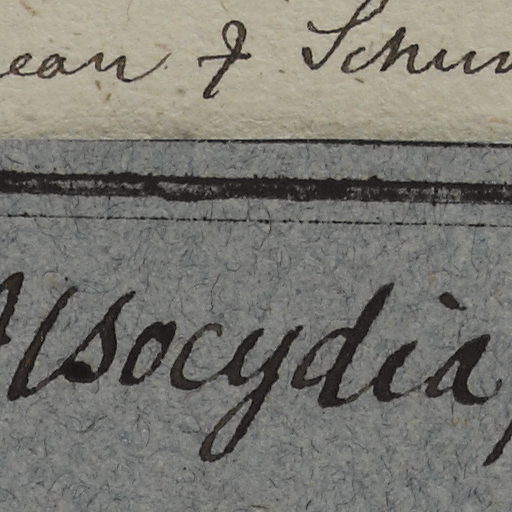 ean & Schum
Usocydia,